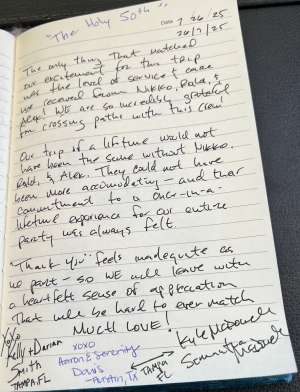 "The Holy 50th"
DATE 7/26/25
26/7/25
The only thing that matched
our excitement for this trip
was the level of service & care
we received from Nikko, Rald, &
Alek! We are so incredibly grateful
for crossing paths with this crew!
Our trip of a lifetime would not
have been the same without Nikko,
Rald, & Alek. They could not have
been more accomodating - and their
commitment to a once-in-a-
lifetime experience for our entire
party was always felt.
"Thank you" feels inadequate as
we part - so we will leave with
a heartfelt sense of appreciation
that will be hard to ever match
Much love!
XOXO
Kelly + Darian
Smith
TAMPA FL
XOXO
Aaron & Serenity
Davis
-Austin, TX
TAMPA
FL
Kyle McDowell
Samantha McDowell